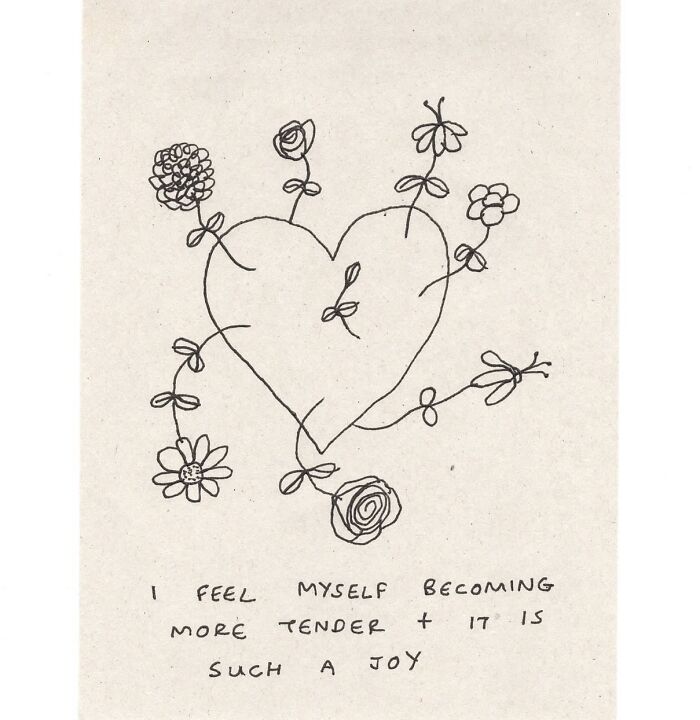 I FEEL MYSELF BECOMING
MORE TENDER + IT IS
SUCH A JOY